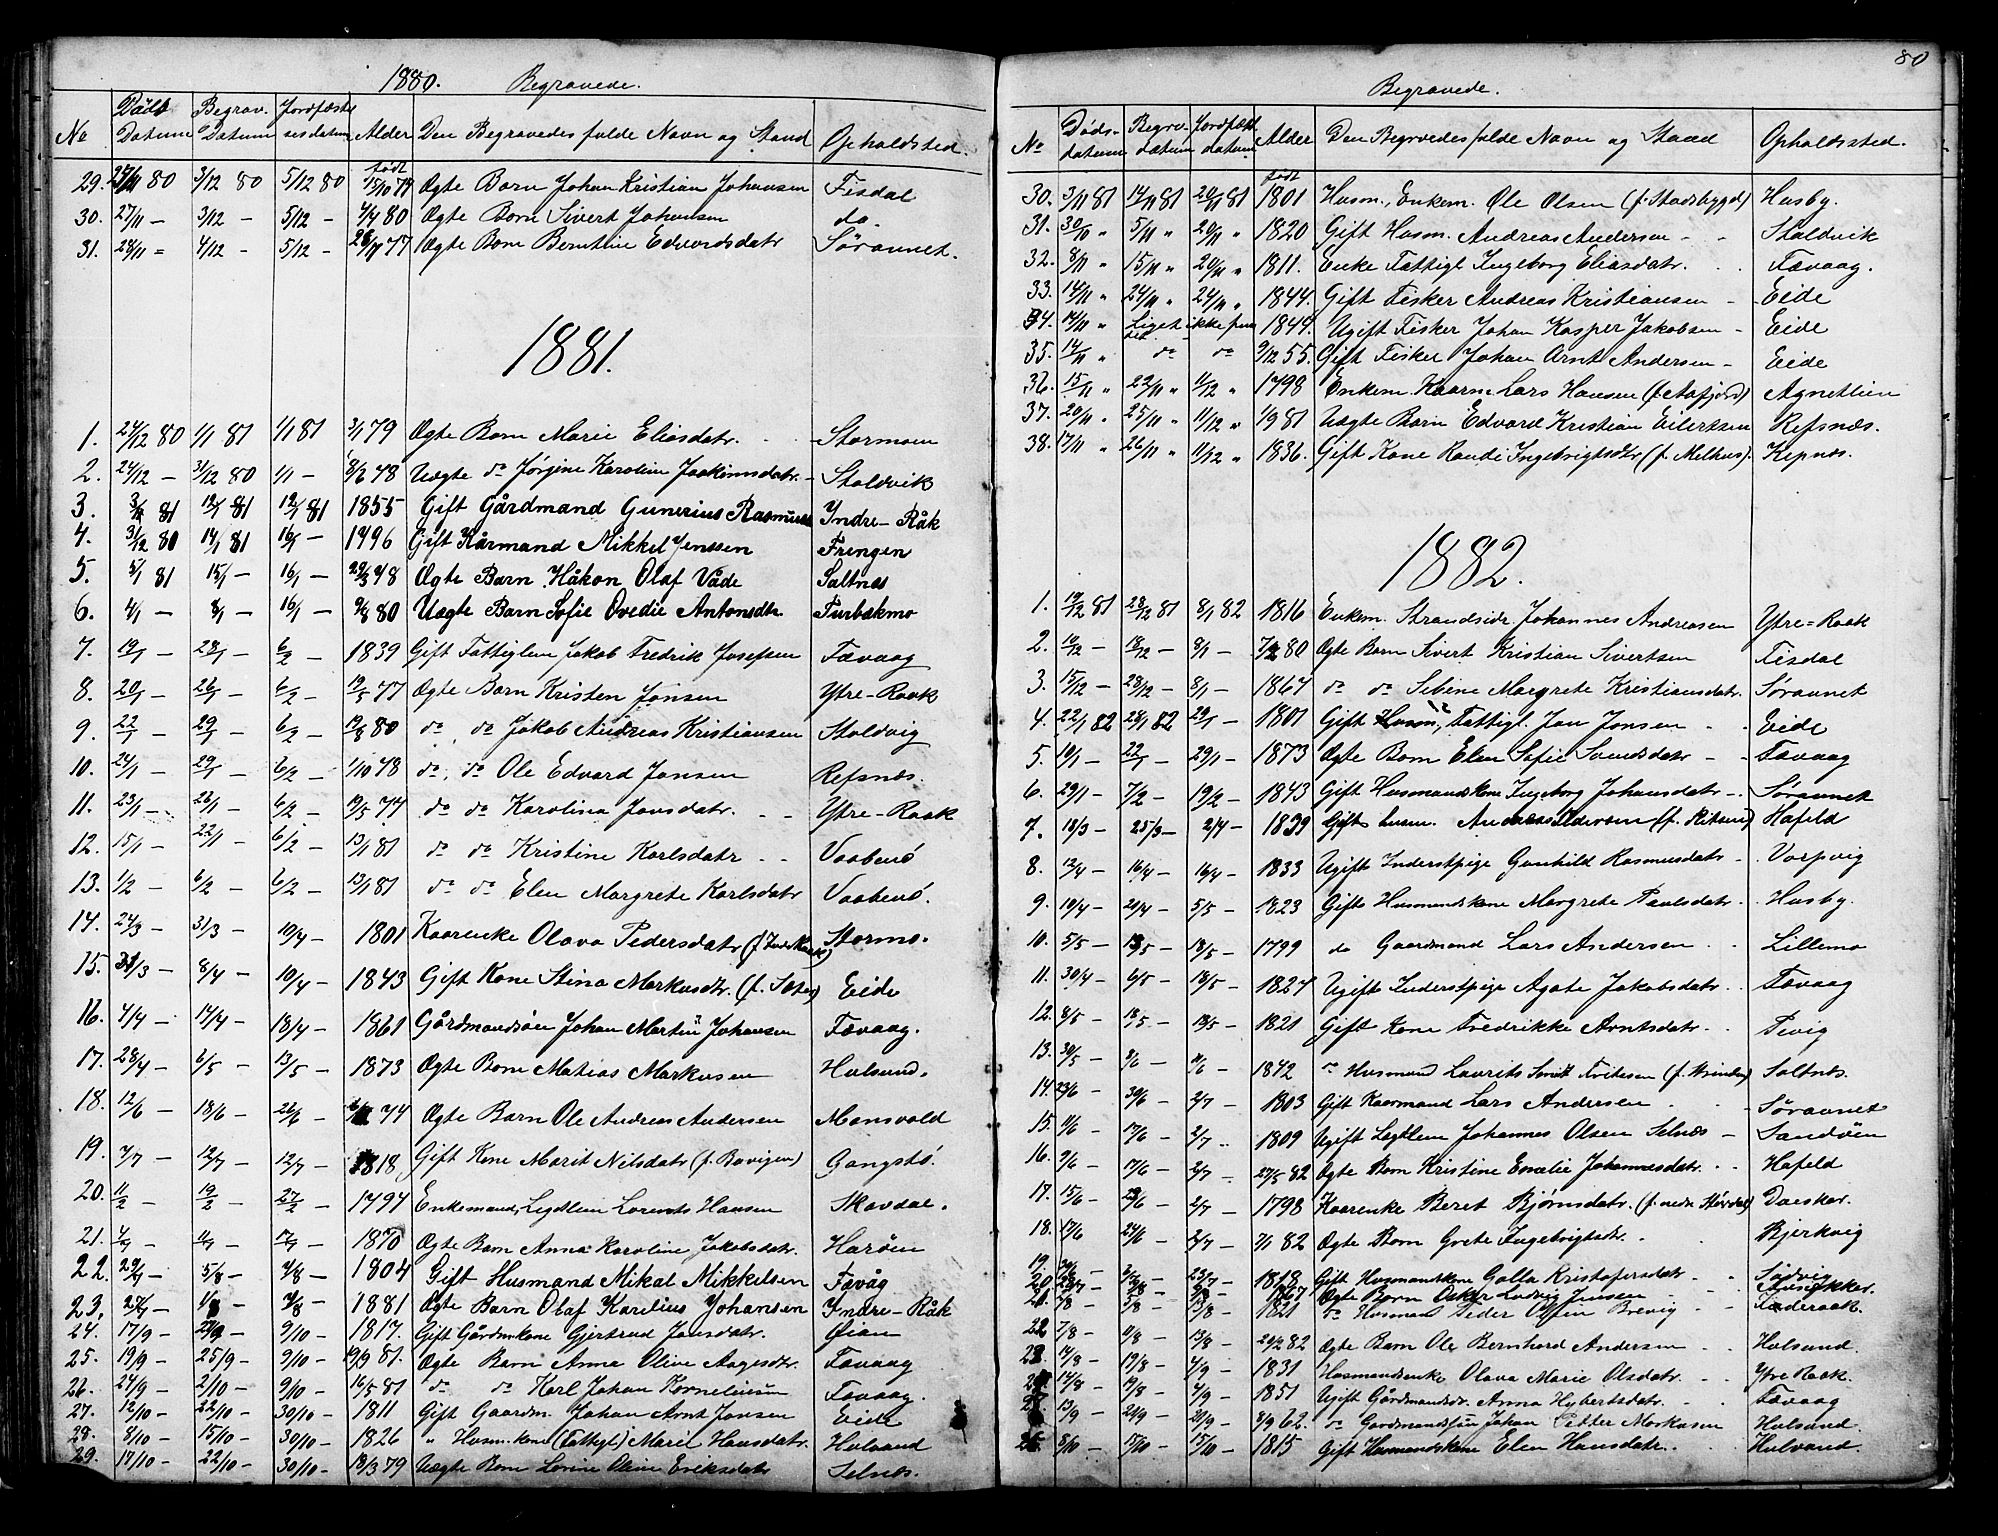 1880. Begravede.
No Døds Datum Begrav. Datum Jordfæstelsesdatum Alder Den Begravedes fulde Navn og Stand Opholdsted.
29. 27/11 80 3/12 80 5/12 80 født 15/10 79 Ægte Barn Johan Kristian Johansen Fisdal
30. 27/11 - 3/12 - 5/12 - 4/4 80 Ægte Barn Sivert Johansen do.
31. 28/11 = 4/12 - 5/12 - 26/11 77 Ægte Barn Berntine Edvardsdatr Søraunet.
1881.
1. 24/12 80 1/1 81 1/1 81 3/1 79 Ægte Barn Marie Eliasdatr. Stormoen
2. 24/12 - 31/12 80 1/1 - 8/6 78 Uægte do Jørgine Karoline Joakimsdatr. - Stoldvik
3. 3/1 81 12/1 81 12/1 81 1855 Gift Gårdmand Gunerius Rasmusen Yndre-Råk
4. 31/12 80 14/1 81 16/1 - 1796 Gift Kårmand Mikkel Jenssen Frengen
5. 5/1 81 15/1 - 16/1 - 29/3 78 Ægte Barn Håkon Olaf Våde Saltnes
6. 4/1 - 8/1 - 16/1 - 9/8 80 Uægte Barn Sofie Ovedie Antonsdtr Furbakmo
7. 19/1 - 28/1 - 6/2 - 1839 Gift Fattiglem Jakob Fredrik Josefsen Fævaag
8. 20/1 - 26/1 - 6/2 - 12/5 77 Ægte Barn Kristen Jonsen Ytre-Raak
9. 22/1 - 29/1 - 6/2 - 19/8 80 do do Jakob Andreas Kristiansen Stoldvig
10. 24/1 - 29/1 - 6/2 - 1/10 78 do do Ole Edvard Jonsen Refsnæs.
11. 23/1 - 26/1 - 6/2 - 19/5 74 do do Karolina Jonsdatr. - - Ytre-Raak
12. 15/1 - 22/1 - 6/2 - 13/1 81 do do Kristine Karlsdatr - - Vaabenø
13. 1/2 - 6/2 - 6/2 - 13/1 81 do do Elen Margrete Karlsdatr Vaabenø.
14. 24/3 - 31/3 - 10/4 - 1801 Kaarenke Olava Pedersdatr Stormo.
15. 31/3 - 8/4 - 10/4 - 1843 Gift Kone Stina Markusdtr. (f. Sæter) Eide
16. 4/4 - 14/4 - 18/4 - 1861 Gårdmandsøn Johan Martin Johansen Fævaag.
17. 28/4 - 6/5 - 13/5 - 1873 Ægte Barn Matias Markusen Hulsund.
18. 12/6 - 18/6 - 26/6 - 74 Ægte Barn Ole Andreas Andersen Monsvold
19. 7/7 - 12/7 - 12/7 - 1818 Gift Kone Marit Nilsdatr (f. Bavigen) Gangstø.
20. 11/2 - 19/2 - 27/2 - 1794 Enkemand, Legdlem Lorents Hansen Skavdal.
21. 1870 Ægte Barn Anna Karoline Jakobsdatr. Harøen
22. 29/7 - 5/8 - 7/8 - 1804 Gift Husmand Mikal Mikkelsen Fævåg
23. 7/8 - 1881 Ægte Barn Olaf Karelius Johansen Yndre-Råk
24. 17/9 - 9/10 - 1817. Gift Gårdm.kone Gjertrud Jonsdatr. Øian
25. 19/9 - 25/9 - 9/10 - 19/9 81. Ægte Barn Anna Olive Aagesdtr. Fævaag
26. 24/9 - 2/10 - 9/10 - 16/5 81 do do Karl Johan Korneliusen Fævaag.
27. 12/10 - 22/10 - 30/10 - 1811 Gift Gaardm. Johan Arnt Jonsen Eide
28. 8/10 - 15/10 - 30/10 - 1826 " Husm.kone (Fattigl) Marit Hansdatr. Hulsund
29. 14/10 - 22/10 - 30/10 - 18/3 79 Uægte Barn Lovine Oline Eriksdatr Selnæs.
80
Begravede.
No Dødsdatum Begrv.datum Jordfæst.datum Alder Den Begrvedes fulde Navn og Stand Opholdssted.
30. 3/11 81 14/11 81 20/11 81 født 1801 Husm., Enkem. Ole Olsen (f. Stadsbygd) Husby.
31. 30/10 " 5/11 " 20/11 " 1820 Gift Husm. Andreas Andersen - - Stoldvik
32. 8/11 " 15/11 " 20/11 " 1811. Enke Fattigl Ingeborg Eliasdatr. Fævaag.
33. 14/11 " 24/11 " 24/11 " 1844. Gift Fisker Andreas Kristiansen - Eide
34. 14/11 " Liget ikke fundet 1844. Ugift Fisker Johan Kasper Jakobsen - Eide
35. 14/11 " do do 9/12 55. Gift Fisker Johan Arnt Andersen - Eide
36. 15/11 " 22/11 " 11/12 " 1798 Enkem. Kaarm. Lars Hansen (f. Aafjord) Agnetlien
37. 20/11 " 25/11 " 11/12 " 1/9 81 Uægte Barn Edvard Kristian Eilertsen Refsnæs.
38. 17/11 " 26/11 " 11/12 " 1836. Gift Kone Randi Ingebrigtsdtr (f. Melhus). Kepnæs.
1882.
1. 19/12 81 28/12 81 8/1 82 1816 Enkem. Strandsidr. Johannes Andreasen Ytre=Raak
2. 12/12 - 18/12 - 8/1 - 7/2 80 Ægte Barn Sivert Kristian Sivertsen Fisdal
3. 15/12 - 28/12 - 8/1 - 1867 do do Sebine Margrete Kristiansdatr. Søraunet
4. 22/1 82 28/1 82 29/1 - 1801 Gift Husm., Fattigl. Jan Jonsen Eide
5. 10/1 - 22/1 - 29/1 - 1873 Ægte Barn Elen Sofie Svendsdatr - - Fævaag
6. 29/1 - 7/2 - 19/2 - 1843 Gift Husmandskone Ingeborg Johansdatr -. Søraunet
7. 18/3 - 25/3 - 2/4 - 1839 Gift Husm. Andreas (f. Ritsen) Hafeld
8. 12/4 - 16/4 - 16/4 - 1833 Ugift Inderstpige Gunhild Rasmusdatr - Vorpvig
9. 10/4 - 20/4 - 5/5 - 1823 Gift Husmandskone Margrete Paulsdatr. Husby.
10. 5/5 - 13/5 - 18/5 - 1799 do Gaardmand Lars Andersen Lillemo
11. 30/4 - 6/5 - 18/5 - 1824 Ugift Inderstpige Agate Jakobsdatr Fævaag
12. 8/5 - 18/5 - 18/5 - 1821 Gift Kone Fredrikke Arntsdatr. Pevig
13. 30/5 - 8/6 - 11/6 - 1842 do Husmand Laurits Fritesen Saltnæs.
14. 23/6 - 30/6 - 2/7 - 1803 Gift Kaarmand Lars Andersen Søraunet
15. 11/6 - 17/6 - 2/7 - 1809 Ugift Legdlem Johannes Olsen Selnæs - Sandøen
16. 9/6 - 17/6 - 2/7 - 27/5 82 Ægte Barn Kristine Emelie Johannesdatr. Hafeld
17. 15/6 - 23/6 - 2/7 - 1798 Kaarenke Beret Bjørnsdatr. (f. nedre Størdal) Daeskar.
18. 17/6 - 24/6 - 2/7 - 3/1 82 Ægte Barn Grete Ingebrigtsdtr. Bjerkvig
19. 1818 Gift Husmandskone Golla Kristofersdatr
20. Ægte Barn Oskar Ludvig Jensen
21. 7/8 - 13/8 - 1821 do Husmand Peder Olsen Brevig
22. 7/8 - 11/8 - 13/8 - 20/2 82 Ægte Barn Ole Bernhard Andersen Hulsund.
23. 14/8 - 19/8 - 4/9 - 1831 Husmandsenke Olava Marie Olsdatr. Ytre Raak.
14/8 - 19/8 - 4/9 - 1851 Ugift Gårdmandsdr. Anna Hybertsdatr. Fævaag
13/9 - 20/9 - 20/9 - 8/9 62. do Gardmandssøn Johan Petter Markusen Hulsund
26. 8/10 - 15/10 - 15/10 - 1815 Gift Husmandskone Elen Hansdatr. Hulsund.